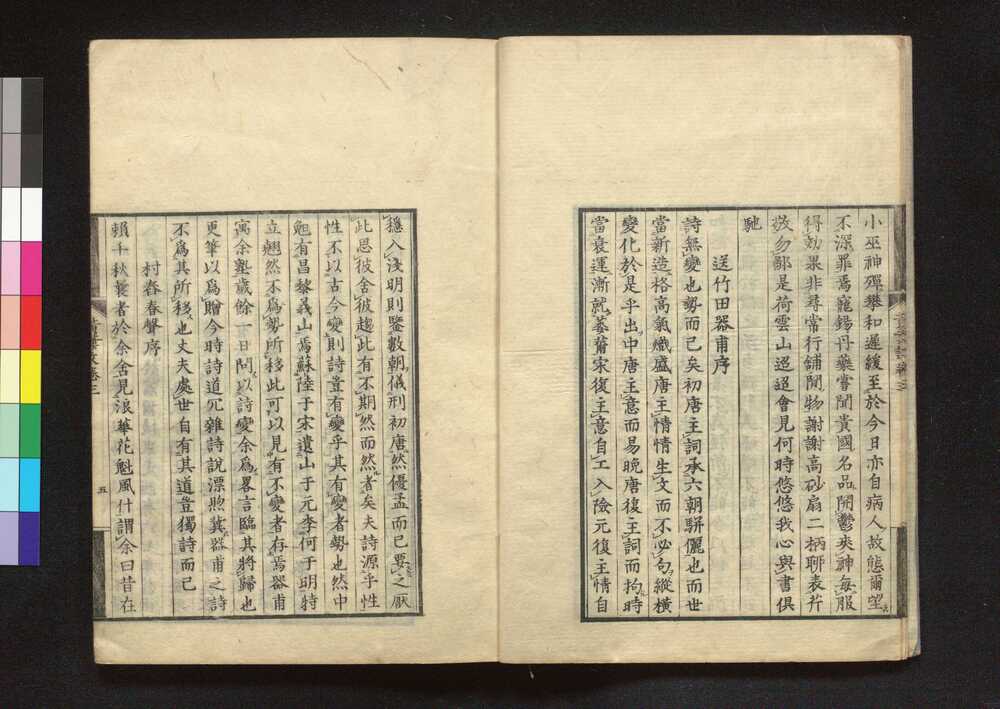 小巫神殫攀和遲緩至於今日亦自病人故態爾望
不深罪焉寵錫丹藥嘗聞貴國名品開鬱爽神每服
得効果非尋常行舖聞物謝謝高砂扇二柄聊表芹
敬勿鄙是荷雲山迢迢會見何時悠悠我心與書俱
馳
送竹田器甫序
詩無變也勢而已矣初唐主詞承六朝駢儷也而世
當新造格高氣熾盛唐主情情生文而不必句縱橫
變化於是乎出中唐主意而易晚唐復主詞而拘時
當衰運漸就萎薾宋復主意自工入險元復主情自
穩入淺明則鑒數朝儀刑初唐然優孟而已要之厭
此思彼舍彼趨此有不期然而然者矣夫詩源乎性
性不以古今變則詩豈有變乎其有變者勢也然中
勉有昌黎義山焉蘇陸于宋遺山于元李何于明特
立翹然不為勢所移此可以見有不變者存焉器甫
寓余塾歲餘一日問以詩變余為畧言臨其將歸也
更筆以為贈今時詩道冗雜詩說漂煦冀器甫之詩
不為其所移也丈夫處世自有其道豈獨詩而已
村舂春聲序
賴千秋襲者於余舍見浪華花魁風什謂余曰昔在
五